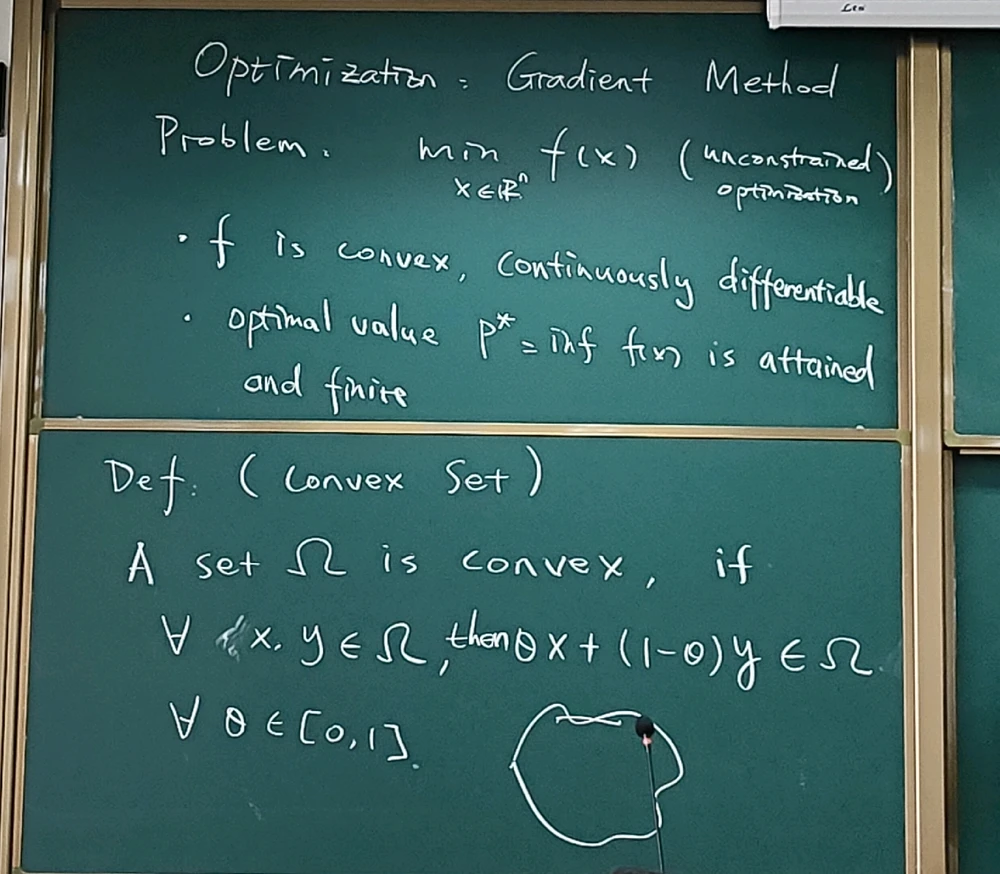 Optimization: Gradient Method
Problem. min f(x) (unconstrained)
x∈ℝⁿ optimization
· f is convex, continuously differentiable
· optimal value p* = inf f(x) is attained
and finite
Def: (Convex Set)
A set Ω is convex, if
∀ x, y ∈ Ω, then θx + (1-θ)y ∈ Ω.
∀ θ ∈ [0,1].